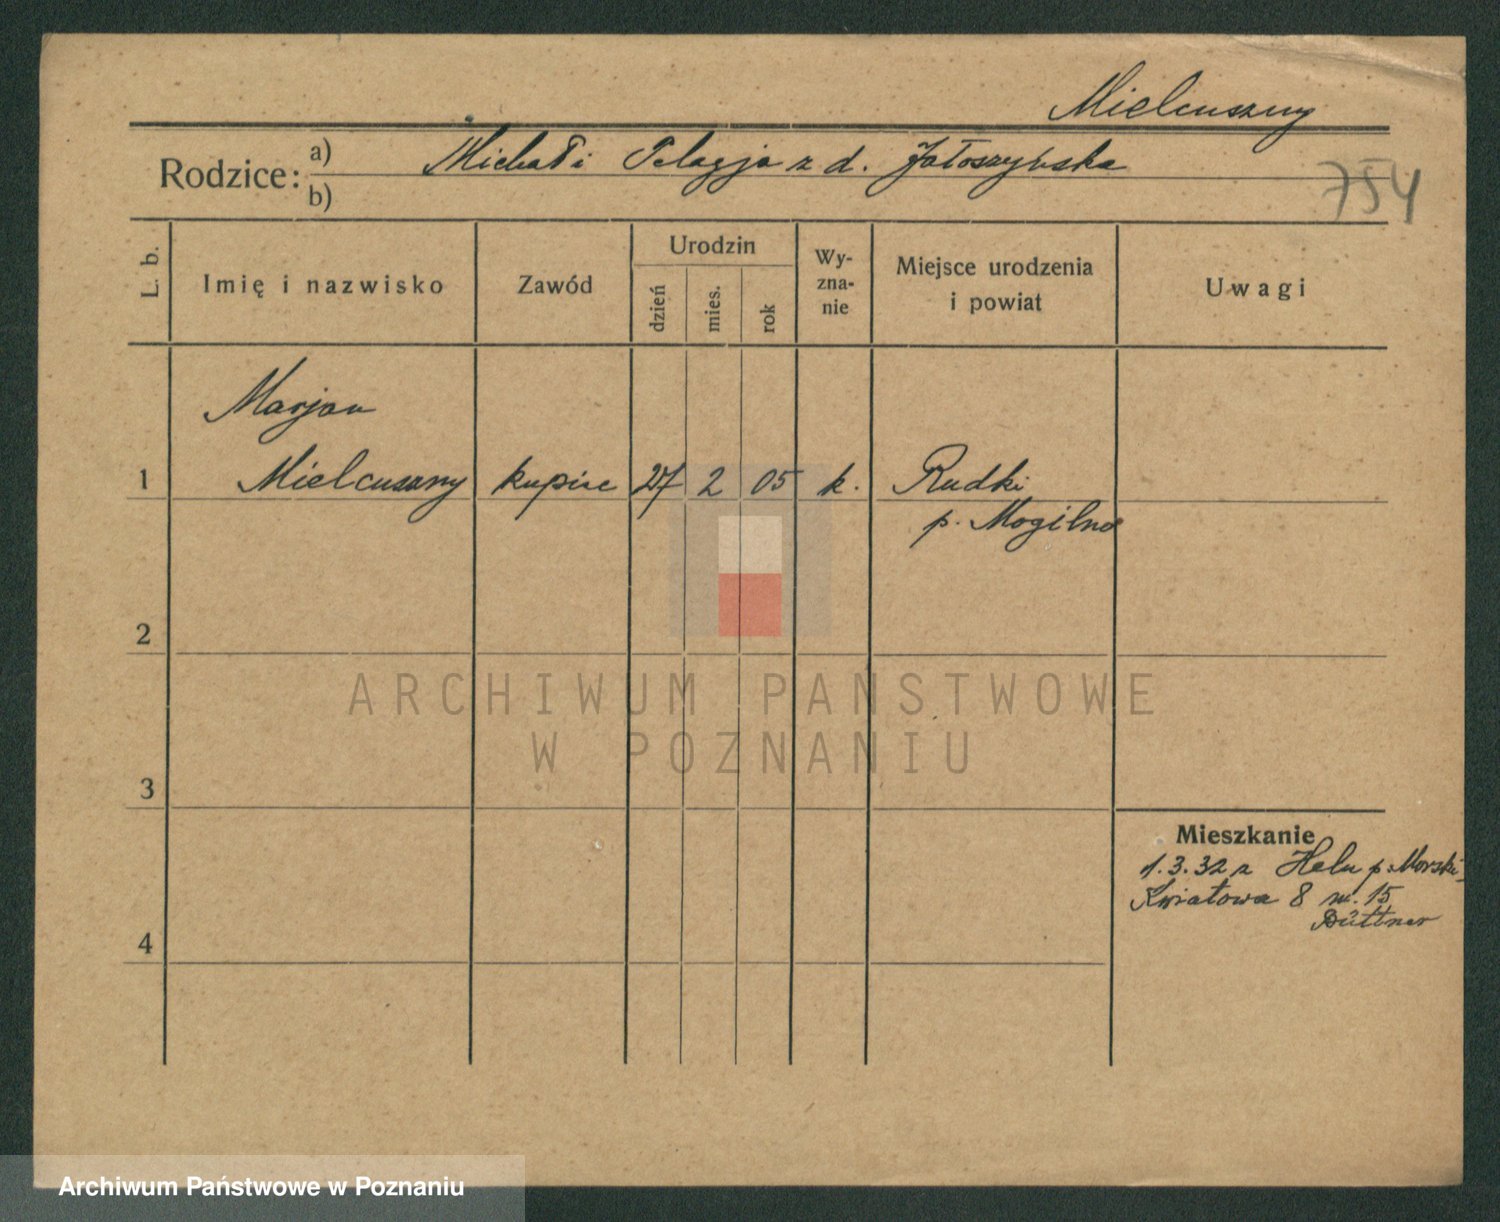 Mielcuszny
Rodzice: a) Michał i Pelagja z d. Jałoszyńska
b)
754
L. b.
Imię i nazwisko
Zawód
Urodzin
dzień
mies.
rok
Wy-
zna-
nie
Miejsce urodzenia
i powiat
Uwagi
Marjan
1 Mielcuszny kupiec 27 2 05 k. Rudki
p. Mogilno
2
ARCHIWUM PAŃSTWOWE
W POZNANIU
3
Mieszkanie
1.3.32 z Helu p. Morski
Kwiatowa 8 m. 15
Büttner
4
Archiwum Państwowe w Poznaniu